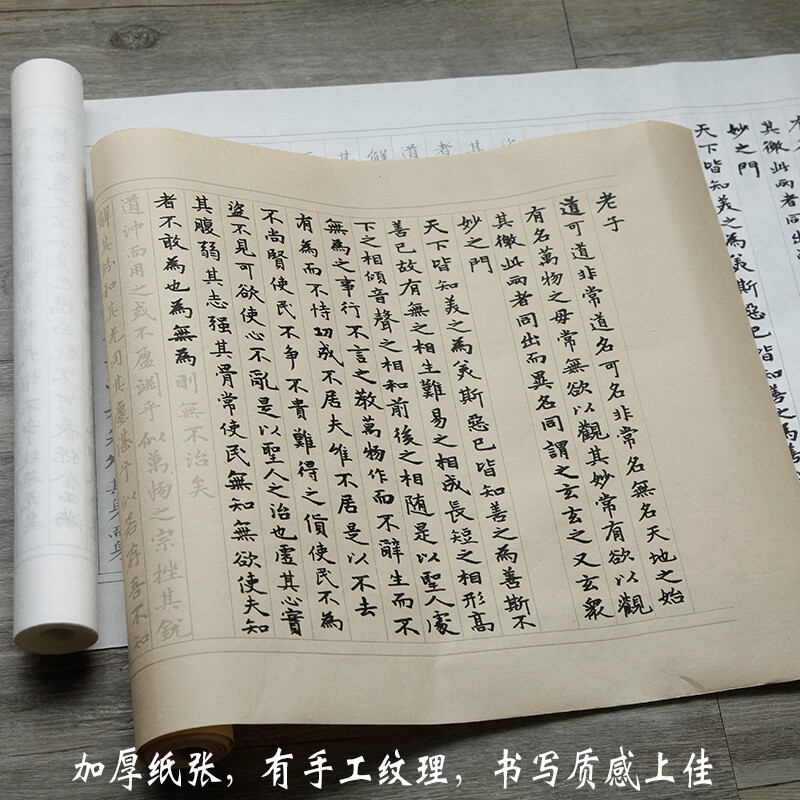 老子
道可道非常道名可名非常名無名天地之始
有名萬物之母常無欲以觀其妙常有欲以觀
其徼此兩者同出而異名同謂之玄玄之又玄衆
妙之門
天下皆知美之為美斯惡已皆知善之為善斯不
善已故有無之相生難易之相成長短之相形高
下之相傾音聲之相和前後之相随是以聖人處
無為之事行不言之教萬物作而不辭生而不
有為而不恃功成不居夫惟不居是以不去
不尚賢使民不争不貴難得之貨使民不為
盜不見可欲使心不亂是以聖人之治也虛其心實
其腹弱其志强其骨常使民無知無欲使夫知
者不敢為也為無為則無不治矣
道沖而用之或不盈淵乎似萬物之宗挫其銳
解其紛和其光同其塵湛乎似若存吾不知
其徼此兩者同出
妙之門
天下皆知美之為美斯惡已皆知善之為善
加厚纸张，有手工纹理，书写质感上佳